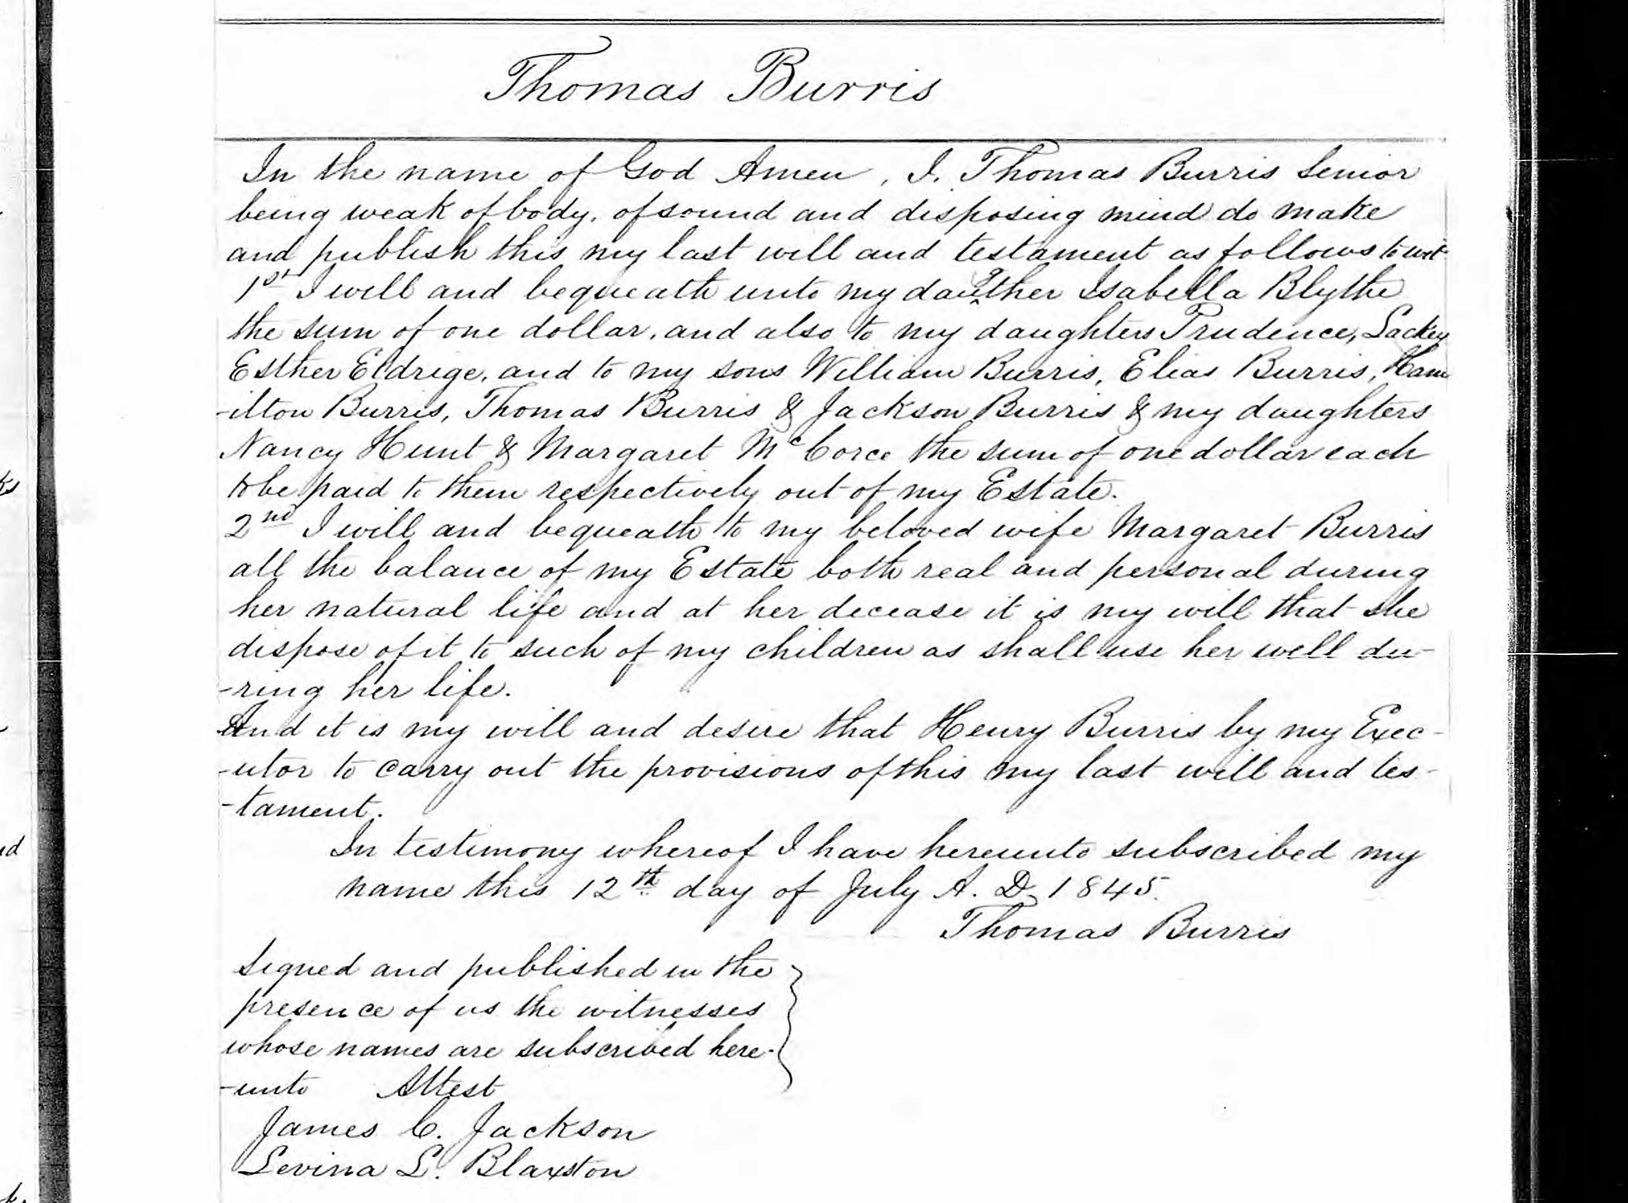 Thomas Burris
In the name of God Amen, I. Thomas Burris Senior
being weak of body, of sound and disposing mind do make
and publish this my last will and testament as follows to wit
1st I will and bequeath unto my daugther Isabella Blythe
the sum of one dollar, and also to my daughters Prudence, Lackey
Esther Eldrige, and to my sons William Burris, Elias Burris, Ham
-ilton Burris, Thomas Burris & Jackson Burris & my daughters
Nancy Hunt & Margaret McCorce the sum of one dollar each
to be paid to them respectively out of my Estate.
2nd I will and bequeath to my beloved wife Margaret Burris
all the balance of my Estate both real and personal during
her natural life and at her decease it is my will that she
dispose of it to such of my children as shall use her well du-
-ring her life.
And it is my will and desire that Henry Burris by my Exec-
-utor to carry out the provisions of this my last will and tes-
-tament.
In testimony whereof I have hereunto subscribed my
name this 12th day of July A. D. 1845.
Thomas Burris
Signed and published in the
presence of us the witnesses
whose names are subscribed here-
-unto Attest
James C. Jackson
Levina L. Blaxston